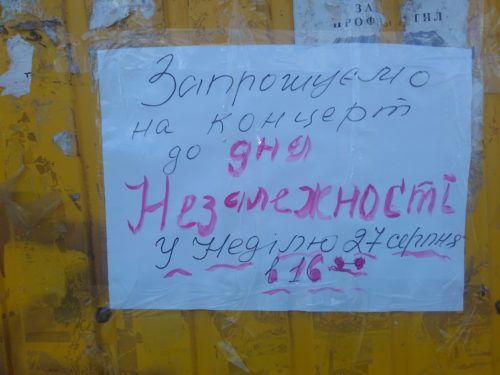 ЗА
Запрошуємо
на концерт
до дня
Незалежності
У Неділю 27 серпня
в 16 00